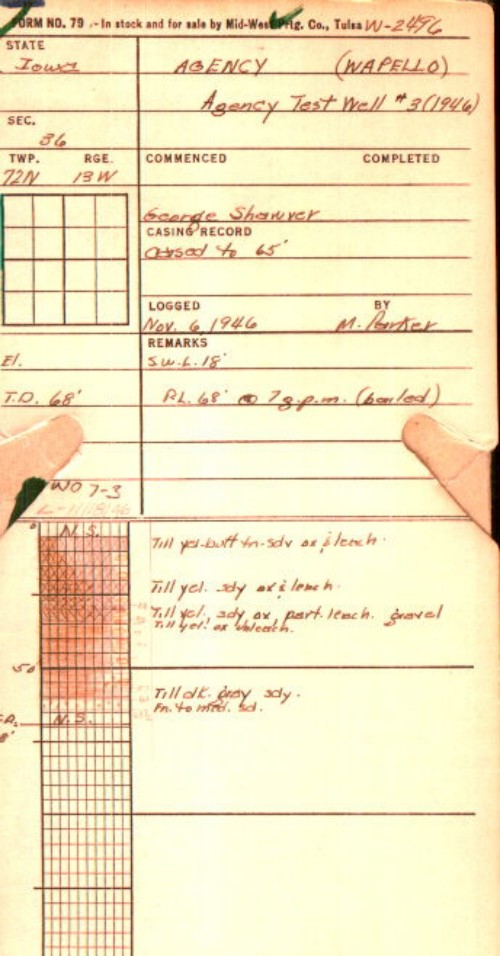 FORM NO. 79 - In stock and for sale by Mid-West Prtg. Co., Tulsa W-2496
STATE
Iowa AGENCY (WAPELLO)
Agency Test Well #3 (1946)
SEC.
36
TWP. RGE. COMMENCED COMPLETED
72N 13W
George Shawver
CASING RECORD
cased to 65'
LOGGED BY
Nov. 6, 1946 M. Parker
REMARKS
El. S.W.L. 18'
T.D. 68' P.L. 68' @ 7 g.p.m. (bailed)
WO 7-3
0 N.S. Till yel-buff fn-sdy ox & leach.
Till yel. sdy ox & leach.
Till yel. sdy ox, part. leach. gravel
Till yel. ox unleach.
50
Till dk. gray sdy.
Fn. to med. sd.
N.S.